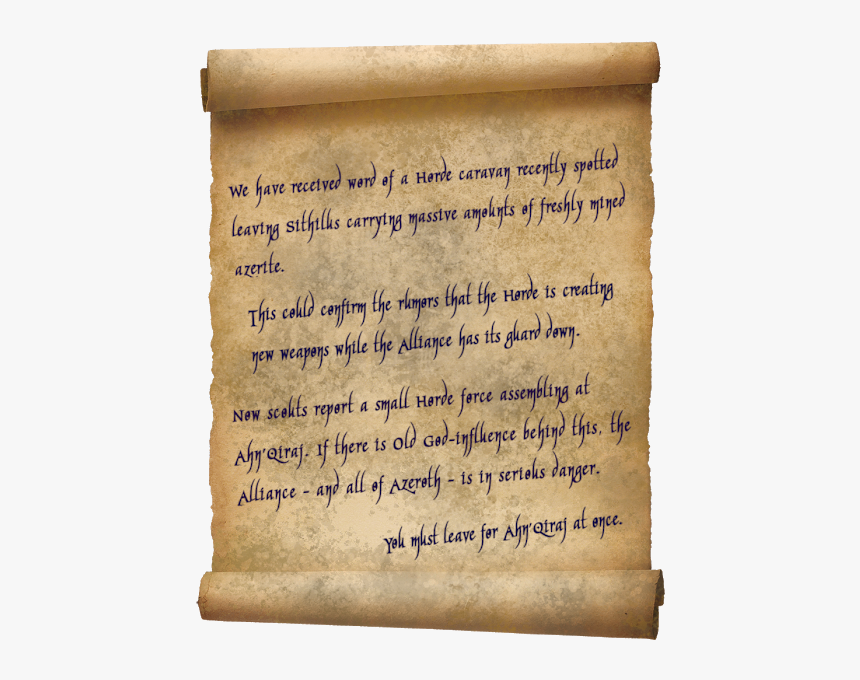 We have received word of a Horde caravan recently spotted
leaving Sithilus carrying massive amounts of freshly mined
azerite.
This could confirm the rumors that the Horde is creating
new weapons while the Alliance has its guard down.
Now scouts report a small Horde force assembling at
Ahn'Qiraj. If there is Old God-influence behind this, the
Alliance - and all of Azeroth - is in serious danger.
You must leave for Ahn'Qiraj at once.